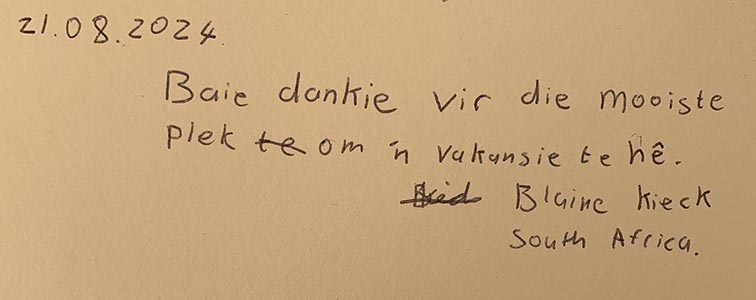 21.08.2024
Baie dankie vir die mooiste
plek te om 'n vakansie te hê.
Blaine Kieck
South Africa.